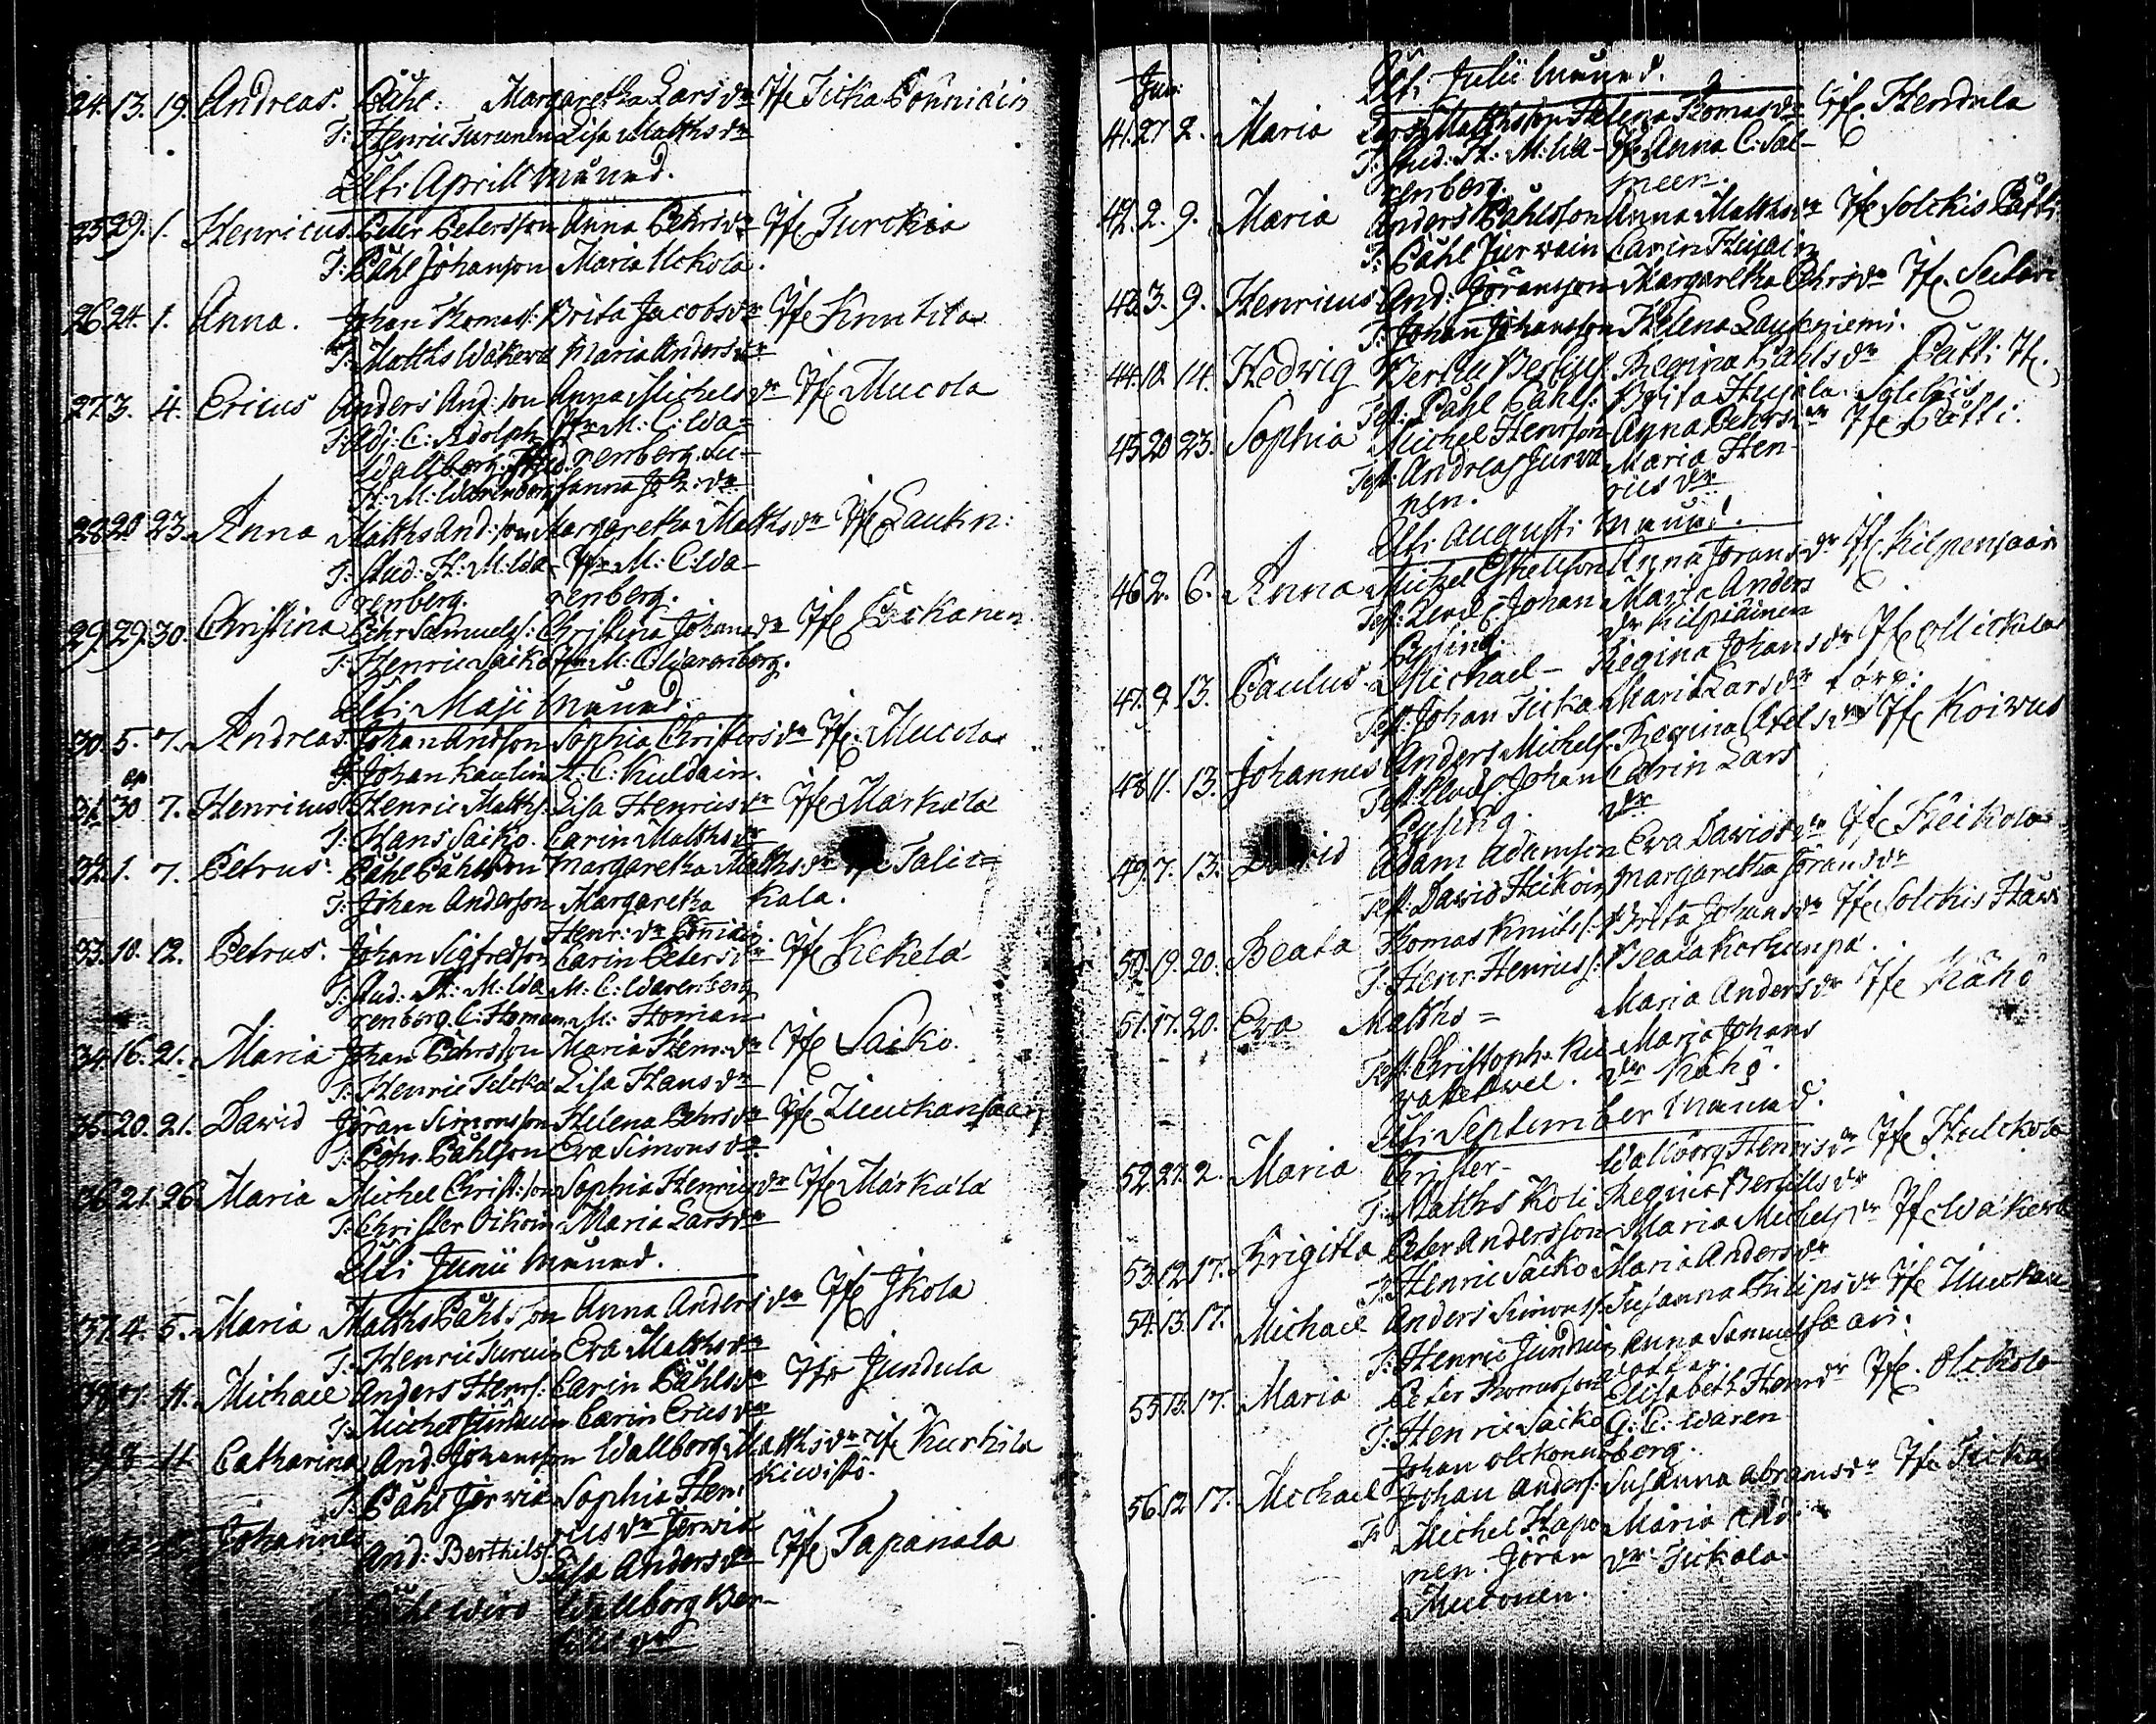 24. 13. 19. Andreas. Påhl: Margaretha Lars dr Ife Ticka Pönniäin
T: Henric Turunen Lisa Matths dr
Uti Aprill Månad.
25 29. 1. Henricus. Peter Petersson Anna Pehrs dr Ife Turckia
T: Påhl Johanson Maria Uckola.
26 24. 1. Anna. Johan Thomas: Brita Jacobs dr Ife Knutila
T: Matths Wäkewä Maria Anders dr
27 3. 4. Ericus Anders And: son Anna Michels dr Ife Mucola
T: Adj: C: Adolph Jfr M: C: Wa=
Wallborg. Stud. renberg. Su-
H: M: Warenberg sanna Joh: dr
28 20 23. Anna Matths And: son Margaretha Matths dr Ife Laukn:
T: Stud: H: M: Wa- Jfr M: C: Wa-
renberg. renberg.
29. 29. 30. Christina Pehr Samuels: Christina Johans dr Ife
T: Henric Saiko Jfr M: C: Warenberg.
Uti Maji Månad.
30. 5. 7. Andreas. Johan Andson Sophia Christers dr Ife Mucola
T: Johan Kaukin A: C: Kuldain.
31. 30 7. Henricus Henric Matths: Lisa Henrics dr Ife Märkälä
T: Hans Saiko. Carin Matths dr
32. 1. 7. Petrus. Påhl Påhlson Margaretha Matths dr Ife Talic=
T: Johan Anderson Margaretha kala.
Henr: dr
33. 10. 12. Petrus. Johan Sigfredson Carin Peters dr Ife Kekelä
T: Stud: H: M: Wa M: C: Warenberg
renberg. C: Homan M: Homan
34. 16. 21. Maria Johan Pehrsson Maria Henr: dr Ife Saiko.
T: Henric Lisa Hans dr
35. 20. 21. David Jöran Simonsson Helena Pehrs dr Ife Muckansaari
T: Pehr Påhlson Eva Simons dr
36. 21. 26. Maria Michel Christ: son Sophia Henrics dr Ife Märkälä
T: Christer Oikoin Maria Lars dr
Uti Junii Månad.
37. 4. 5. Maria Matths Påhlson Anna Anders dr Ife Ikola
T: Henric Eva Matths dr
11. Michael Anders Henrs: Carin Påhls dr Ife Jundula
T: Michel Carin Erics dr
8 11. Catharina And: Johansson Wallborg Matths dr Ife Kurkila
T: Påhl Jerwin Sophia Hen: Kiwistö.
rics dr Jerwin
Johannes And: Berthils: Lisa Anders dr Ife Tapanala
Påhl Wallborg Ber-
tills dr
Jun: Uti Julii Månad.
41. 27 2. Maria Lars Matthsson Helena Thomas dr Ife. Hendula
T: Stud: H: M: Wa- Jfr Anna C: Sal-
renberg. meen.
42. 2. 9. Maria Anders Påhlsson Anna Matths dr Ife Solckis Pätti
T: Påhl Carin
43. 3. 9. Henricus And: Göransson Margaretha Pehrs dr Ife.
T: Johan Johansson Helena Laukniemi.
44. 10. 14. Hedwig Bertill Bertils: Regina Påhls dr Pätti Ife.
Test: Påhl Påhls: Brita Solckis
45 20 23. Sophia Michel Henrson Anna Pehrs dr Ife Pätti.
Test: Andreas Jurva Maria Hen-
nen. rics dr
Uti Augusti Månad.
46 2. 6. Anna Michel Eskelson Anna Jörans dr Ife Kilpensaari
Test: Johan Maria Anders
dr Kilpiäinen
47. 9. 13. Paulus Michael- Regina Johans dr Ife Mickela
Test: Johan Ticka Maria Lars dr torp:
48 11. 13. Johannes Anders Michels: Regina Axels dr Ife Koiwus
Test: Johan Catrin Lars
dr
49. 7. 13. David Adam Adamson Eva Davids dr Ife Heikola
Test: David Heikoin Margaretha Jörans dr
50. 19. 20. Beata Thomas Knuts: Brita Johans dr Ife Solckis
T: Henr. Henrics: Beata Korhunpä.
51. 17. 20. Eva Matths = Maria Anders dr Ife Kähö
Test: Christoph. Ku- Maria Johans
dr Kähö.
Uti September Månad.
52. 27. 2. Maria Christer- Wallborg Henrics dr Ife Hulckola
T: Matths Koli Regina Bertills dr
53. 12 17. Brigitta Peter Andersson Maria Michels dr Ife Wäkewä
T: Henric Saiko Maria Anders dr
54. 13. 17. Michael Anders Simonss: Susanna Philips dr Ife Muckan
T: Henric Anna Samuels saari.
55 13. 17. Maria Peter Thomasson Elisabeth Henr: dr Ife. Olckola
T: Henric Saiko G: C: Waren
Johan Olckonen berg.
56. 12 17. Michael Johan Anders: Susanna Abrams dr Ife
T: Michel Hapo Maria And:
nen. Jöran dr Tickala
Mucoinen.